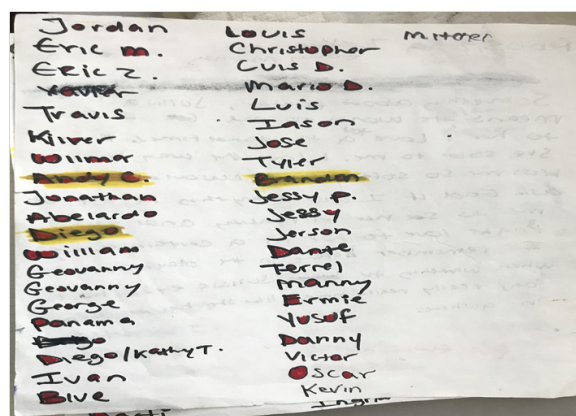 Jordan
Eric M.
Eric Z.
Xavier
Travis
Kilver
Willmer
Andy C.
Jonathan
Abelardo
Diego
William
Geovanny
Geovanny
George
Panama
Diego/Kathy T.
Ivan
Blue
Louis
Christopher
Luis D.
Mario D.
Luis
Iason
Jose
Tyler
Brandon
Jessy P.
Jessy
Jerson
Dante
Terrel
Manny
Ermie
Yusuf
Danny
Victor
Oscar
Kevin